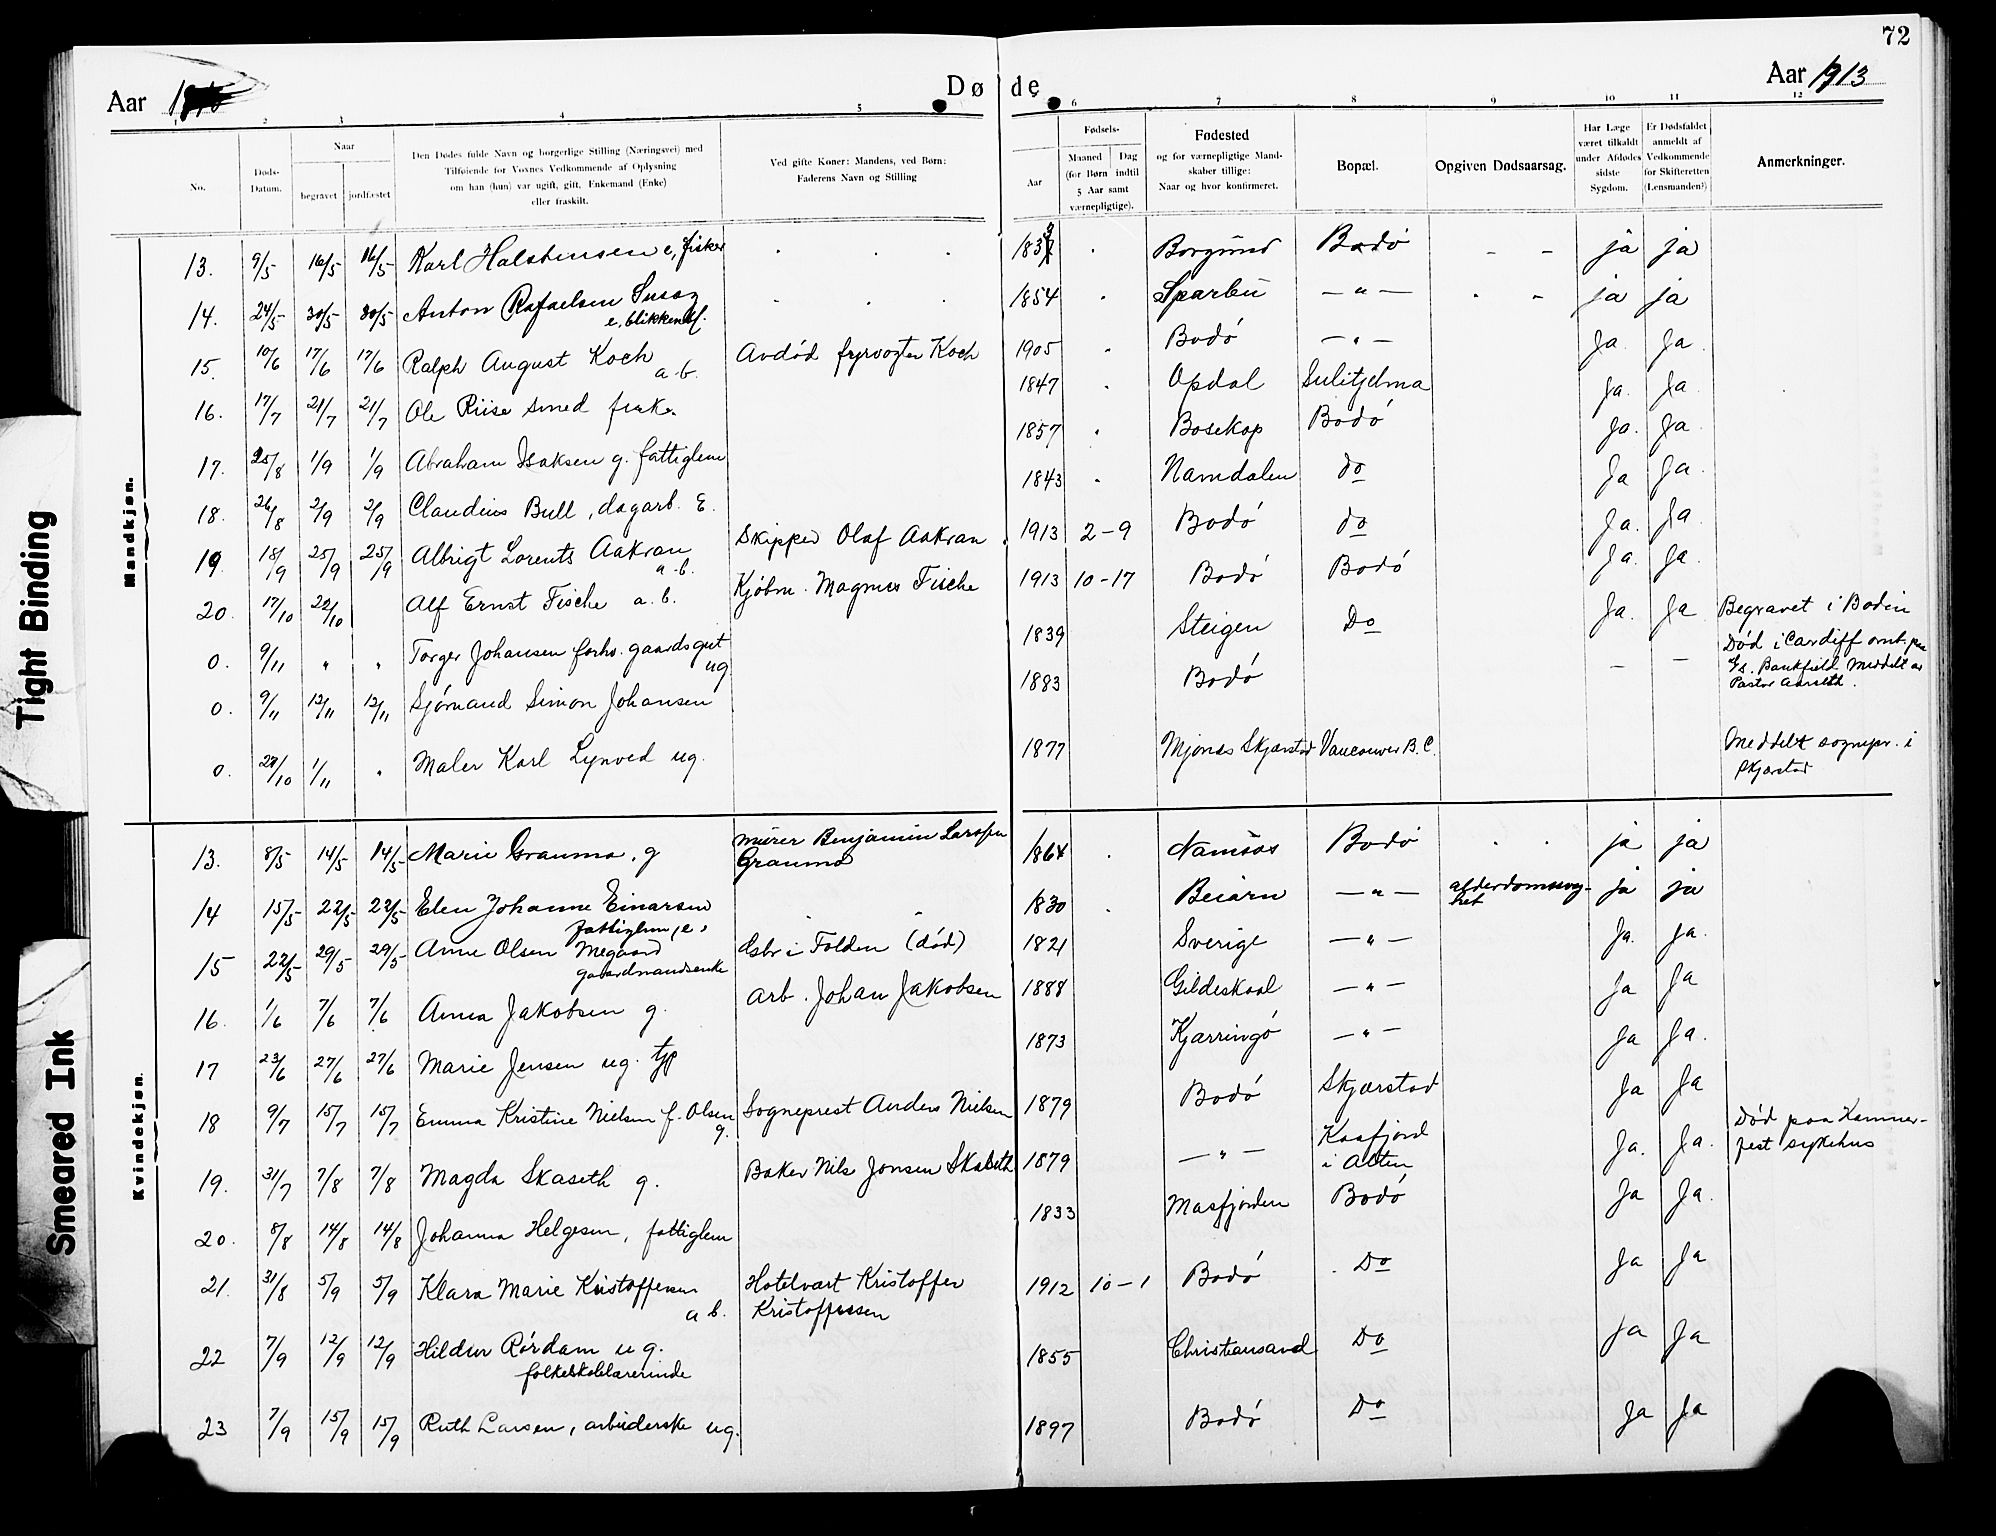 72
Aar
Døde
Aar 1913
1 2 3 4 5 6 7 8 9 10 11 12
No.
Døds-Datum.
Naar
begravet jordfæstet
Den Dødes fulde Navn og borgerlige Stilling (Næringsvei) med
Tilføiende for Voxnes Vedkommende af Oplysning
om han (hun) var ugift, gift, Enkemand (Enke)
eller fraskilt.
Ved gifte Koner: Mandens, ved Børn:
Faderens Navn og Stilling
Aar
Fødsels-
Maaned Dag
(for Børn indtil
5 Aar samt
værnepligtige).
Fødested
og for værnepligtige Mand-
skaber tillige:
Naar og hvor konfirmeret.
Bopæl.
Opgiven Dødsaarsag.
Har Læge
været tilkaldt
under Afdødes
sidste
Sygdom.
Er Dødsfaldet
anmeldt af
Vedkommende
for Skifteretten
(Lensmanden?)
Anmerkninger.
Mandkjøn.
13. 9/5 16/5 16/5 Karl Halstensen e, fisker Borgund Bodø ja ja
14. 24/5 30/5 30/5 Anton Rafaelsen 1854 Sparbu — " — ja ja
15. 10/6 17/6 17/6 Ralph August Koch a.b. Avdød fyrvogter Koch 1905 Bodø — " — Ja Ja
16. 17/7 21/7 21/7 Ole Riise smed 1847 Opdal Sulitjelma Ja. Ja
17. 25/8 1/9 1/9 Abraham Isaksen g. fattiglem 1857 Bosekop Bodø Ja. Ja
18. 26/8 2/9 2/9 Claudius Bull, dagarb. E. 1843 Namdalen do Ja Ja.
19. 18/9 25/9 25/9 Albrigt Lorents Aakran a.b. Skipper Olaf Aakran 1913 2-9 Bodø do Ja. Ja
20. 17/10 22/10 Alf Ernst Fische a.b. Kjøbm. Magnus Fische 1913 10-17 Bodø Bodø Ja. Ja.
0. 9/11 " " Torger Johansen forhv. gaardsgut ug 1839 Steigen Do Ja. Ja Begravet i Bodin
0. 9/11 12/11 12/11 Sjømand Simon Johansen 1883 Bodø — — Død i Cardiff omb. paa
S/s. Bankfield. Meddelt av
Pastor
0. 28/10 1/11 " Maler Karl Lynved ug. 1877 Mjønes Skjerstad Vancouver B.C. Meddelt sognepr. i
Skjerstad
Kvindekjøn.
13. 8/5 14/5 14/5 Marie Graumo, g Murer Benjamin Larssen
Graumo 1864 Namsos Bodø ja ja
14 15/5 22/5 22/5 Elen Johanne Einarsen
fattiglem, e. 1830 Beiarn — " — alderdomssvag-
het ja ja
15 22/5 29/5 29/5 Anne Olsen Megaard
gaardmandsenke Gsbr i Folden (død) 1821 Sverige — " — Ja. Ja.
16. 1/6 7/6 7/6 Anna Jakobsen g. Arb. Johan Jakobsen 1888 Gildeskaal — " — Ja Ja
17 23/6 27/6 27/6 Marie Jensen ug. tjp 1873 Kjærringø — " — Ja Ja.
18 9/7 15/7 15/7 Emma Kristine Nielsen f. Olsen g. Sogneprest Anders Nielsen 1879 Bodø Skjerstad Ja Ja
19. 31/7 7/8 7/8 Magda Skaseth g. Baker Nils Jonsen Skaseth 1879 — " — Kaafjord
i Alten Ja. Ja. Død paa Hammer-
fest sykehus
20. 8/8 14/8 14/8 Johanna Helgesen, fattiglem 1833 Masfjorden Bodø Ja Ja.
21. 31/8 5/9 5/9 Klara Marie Kristoffersen
a b. Hotelvært Kristoffer
Kristoffersen 1912 10-1 Bodø Do Ja Ja
22 7/9 12/9 12/9 Hildur Rørdam ug.
folkeskolelærerinde 1855 Christiansand Do Ja Ja
23 7/9 15/9 15/9 Ruth Larsen, arbeiderske ug. 1897 Bodø Do Ja Ja
Tight Binding
Smeared Ink